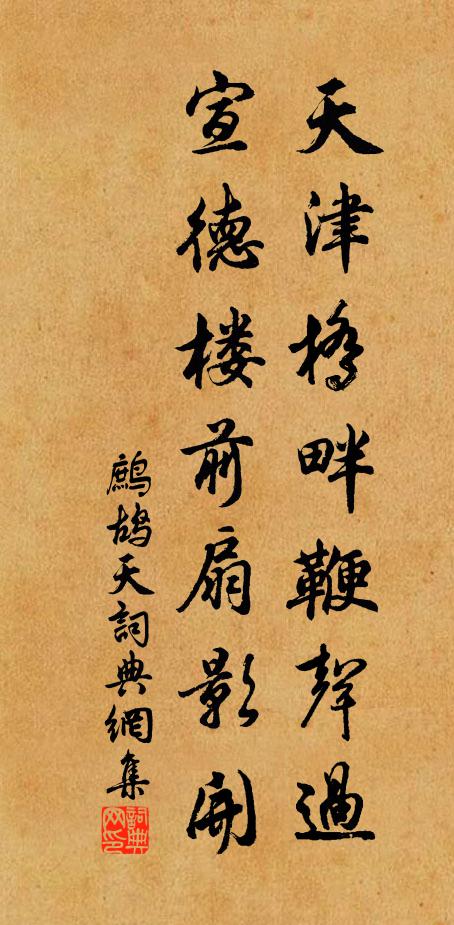 天津橋畔鞭聲過
宣德楼前扇影開
鷓鴣天詞典網集
詞典網印